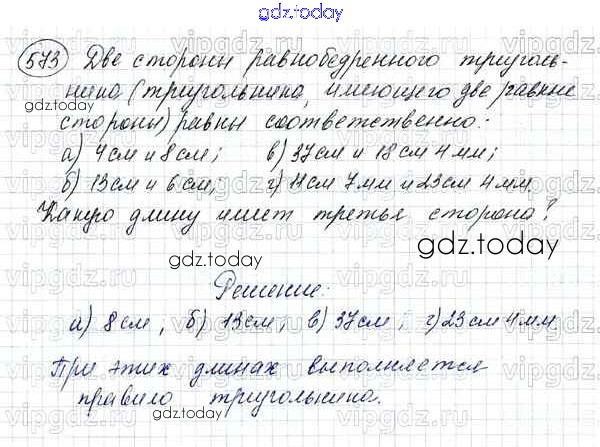 gdz.today
573 Две стороны равнобедренного треуголь-
ника (треугольника, имеющего две равные
gdz.today
стороны) равны соответственно:
а) 4 см и 8 см; в) 37 см и 18 см 4 мм;
б) 13 см и 6 см; г) 11 см 7 мм и 23 см 4 мм.
Какую длину имеет третья сторона?
gdz.today
gdz.today
Решение:
а) 8 см; б) 13 см; в) 37 см; г) 23 см 4 мм.
При этих длинах выполняется
правило треугольника.
gdz.today
vipgdz.ru